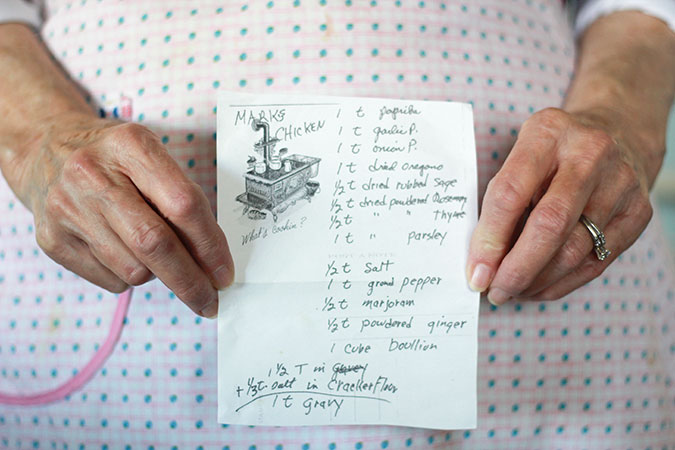 MARKS
CHICKEN
What's Cookin'?
1 t paprika
1 t garlic P.
1 t onion P.
1 t dried oregano
1/2 t dried rubbed sage
1/2 t dried powdered rosemary
1/2 t " " Thyme
1 t " parsley
1/2 t salt
1 t grond pepper
1/2 t marjoram
1/2 t powdered ginger
1 cube boullion
1 1/2 T in
+ 1/3 t salt in Cracker Flour
1 t gravy